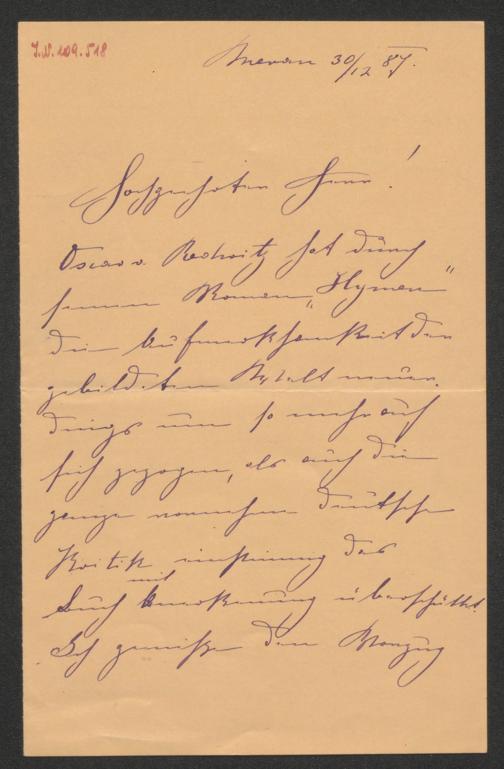 I.N. 109.518
Meran 30/12 87.
Hochgeehrter Herr!
Oscar v. Redwitz hat durch
seinen Roman „Hymen"
die Aufmerksamkeit der
gebildeten Welt neuer-
dings um so mehr auf
sich gezogen, als auch die
ganze vornehme deutsche
Kritik einstimmig das
Buch mit Anerkennung überschüttet.
Ich genieße den Vorzug